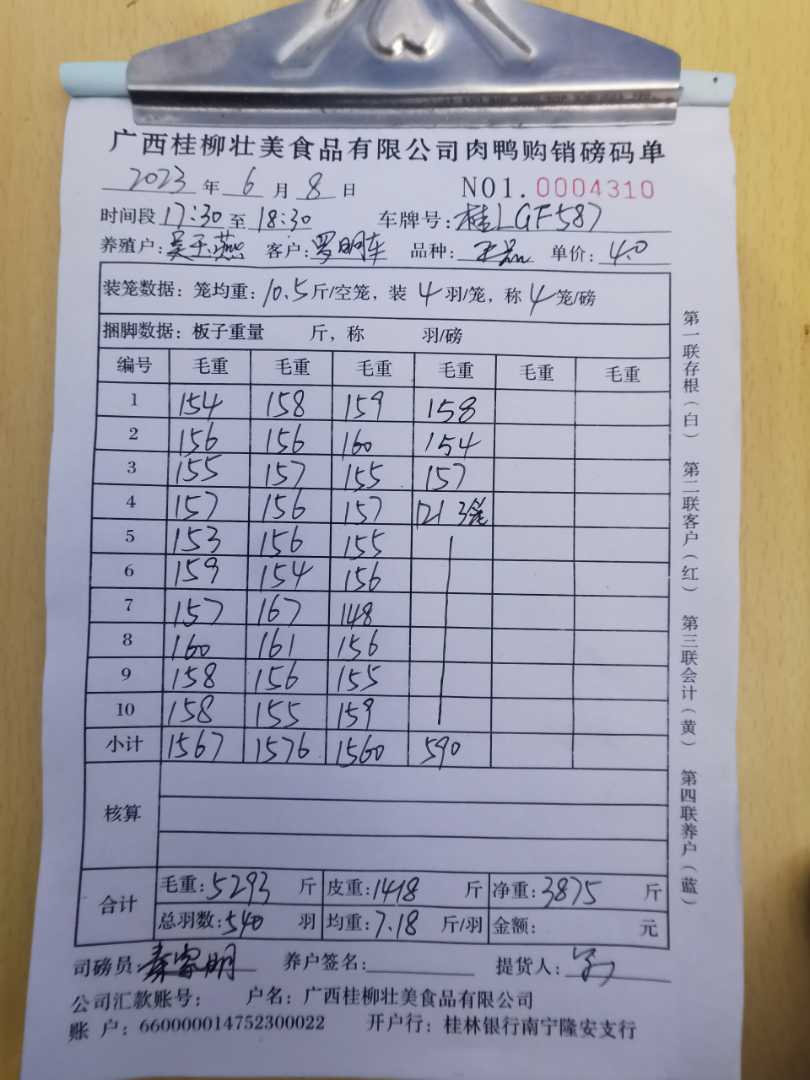 广西桂柳壮美食品有限公司肉鸭购销磅码单
2023 年 6 月 8 日 NO1.0004310
时间段 17:30 至 18:30 车牌号: 桂LGF587
养殖户: 吴玉燕 客户: 罗明车 品种: 单价: 4.0
装笼数据: 笼均重: 10.5 斤/空笼, 装 4 羽/笼, 称 4 笼/磅
捆脚数据: 板子重量 斤, 称 羽/磅
编号 毛重 毛重 毛重 毛重 毛重 毛重
1 154 158 159 158
2 156 156 160 154
3 155 157 155 157
4 157 156 157 121 3笼
5 153 156 155
6 159 154 156
7 157 167 148
8 160 161 156
9 158 156 155
10 158 155 159
小计 1567 1576 1560 590
核算
合计 毛重: 5293 斤 皮重: 1418 斤 净重: 3875 斤
总羽数: 540 羽 均重: 7.18 斤/羽 金额: 元
司磅员: 秦家明 养户签名: 提货人:
公司汇款账号: 户名: 广西桂柳壮美食品有限公司
账 户: 660000014752300022 开户行: 桂林银行南宁隆安支行
第一联存根(白) 第二联客户(红) 第三联会计(黄) 第四联养户(蓝)